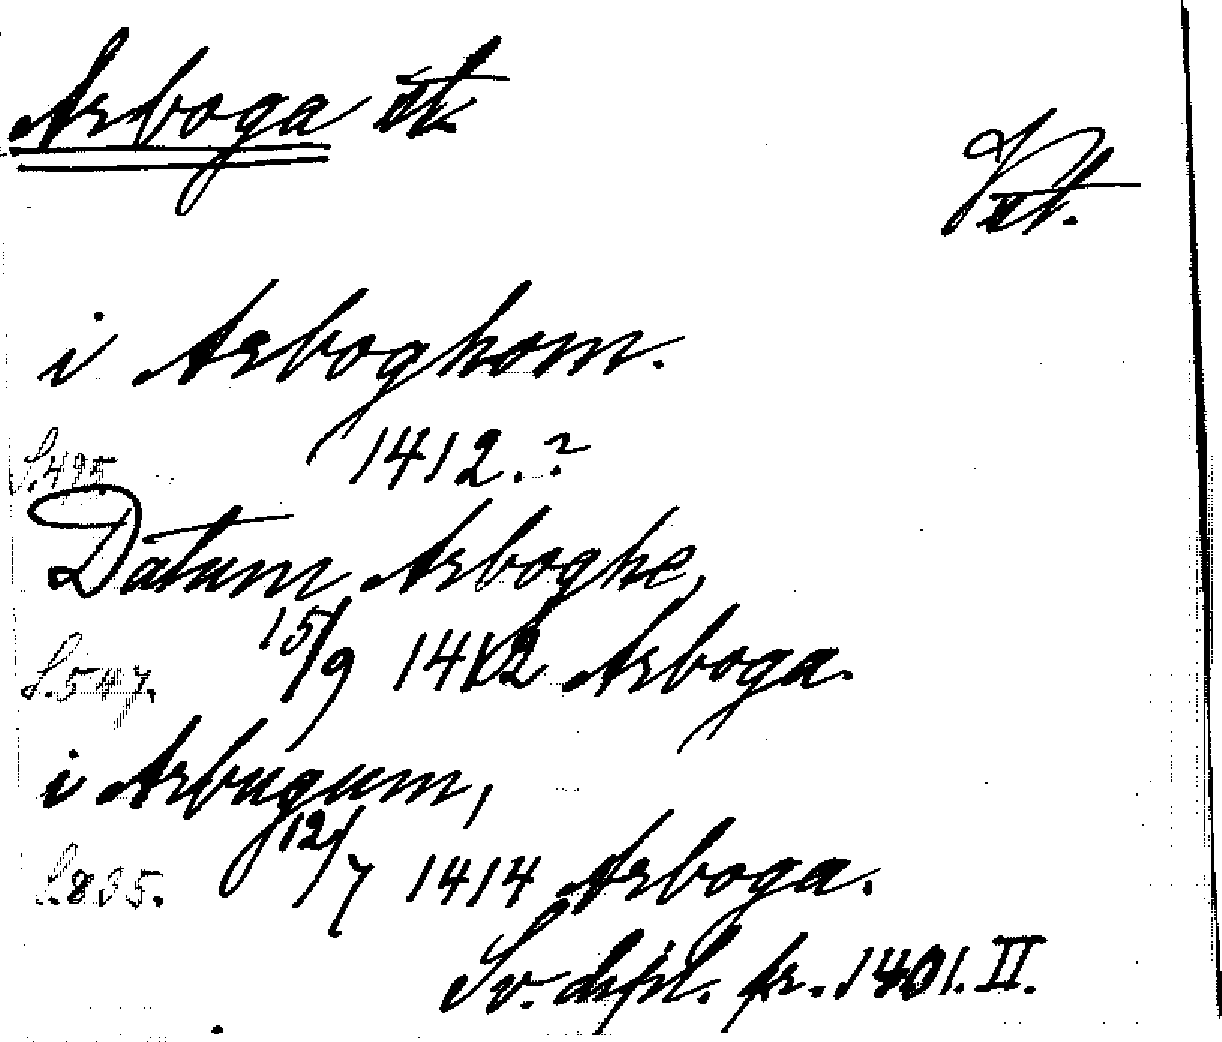 Arboga st.
Vstm.
i Arboghom.
S. 495 1412.?
Datum Arboghe,
S. 547. 15/9 1412 Arboga.
i Arbugum,
S. 835. 12/7 1414 Arboga.
Sv. dipl. fr. 1401. II.